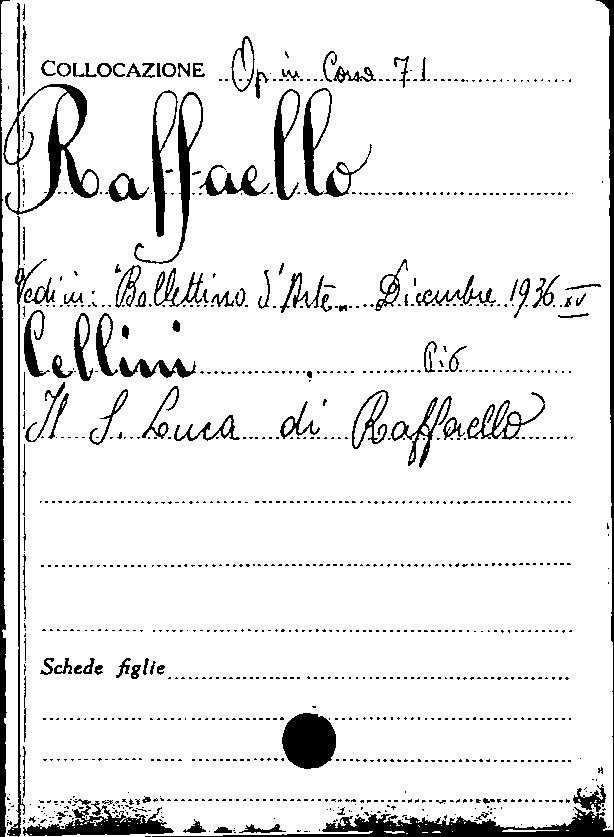 COLLOCAZIONE Op in Corso 71
Raffaello
Vedi in: "Bollettino d'Arte„ Dicembre 1936 XV
Cellini Pió
Il S. Luca di Raffaello
Schede figlie